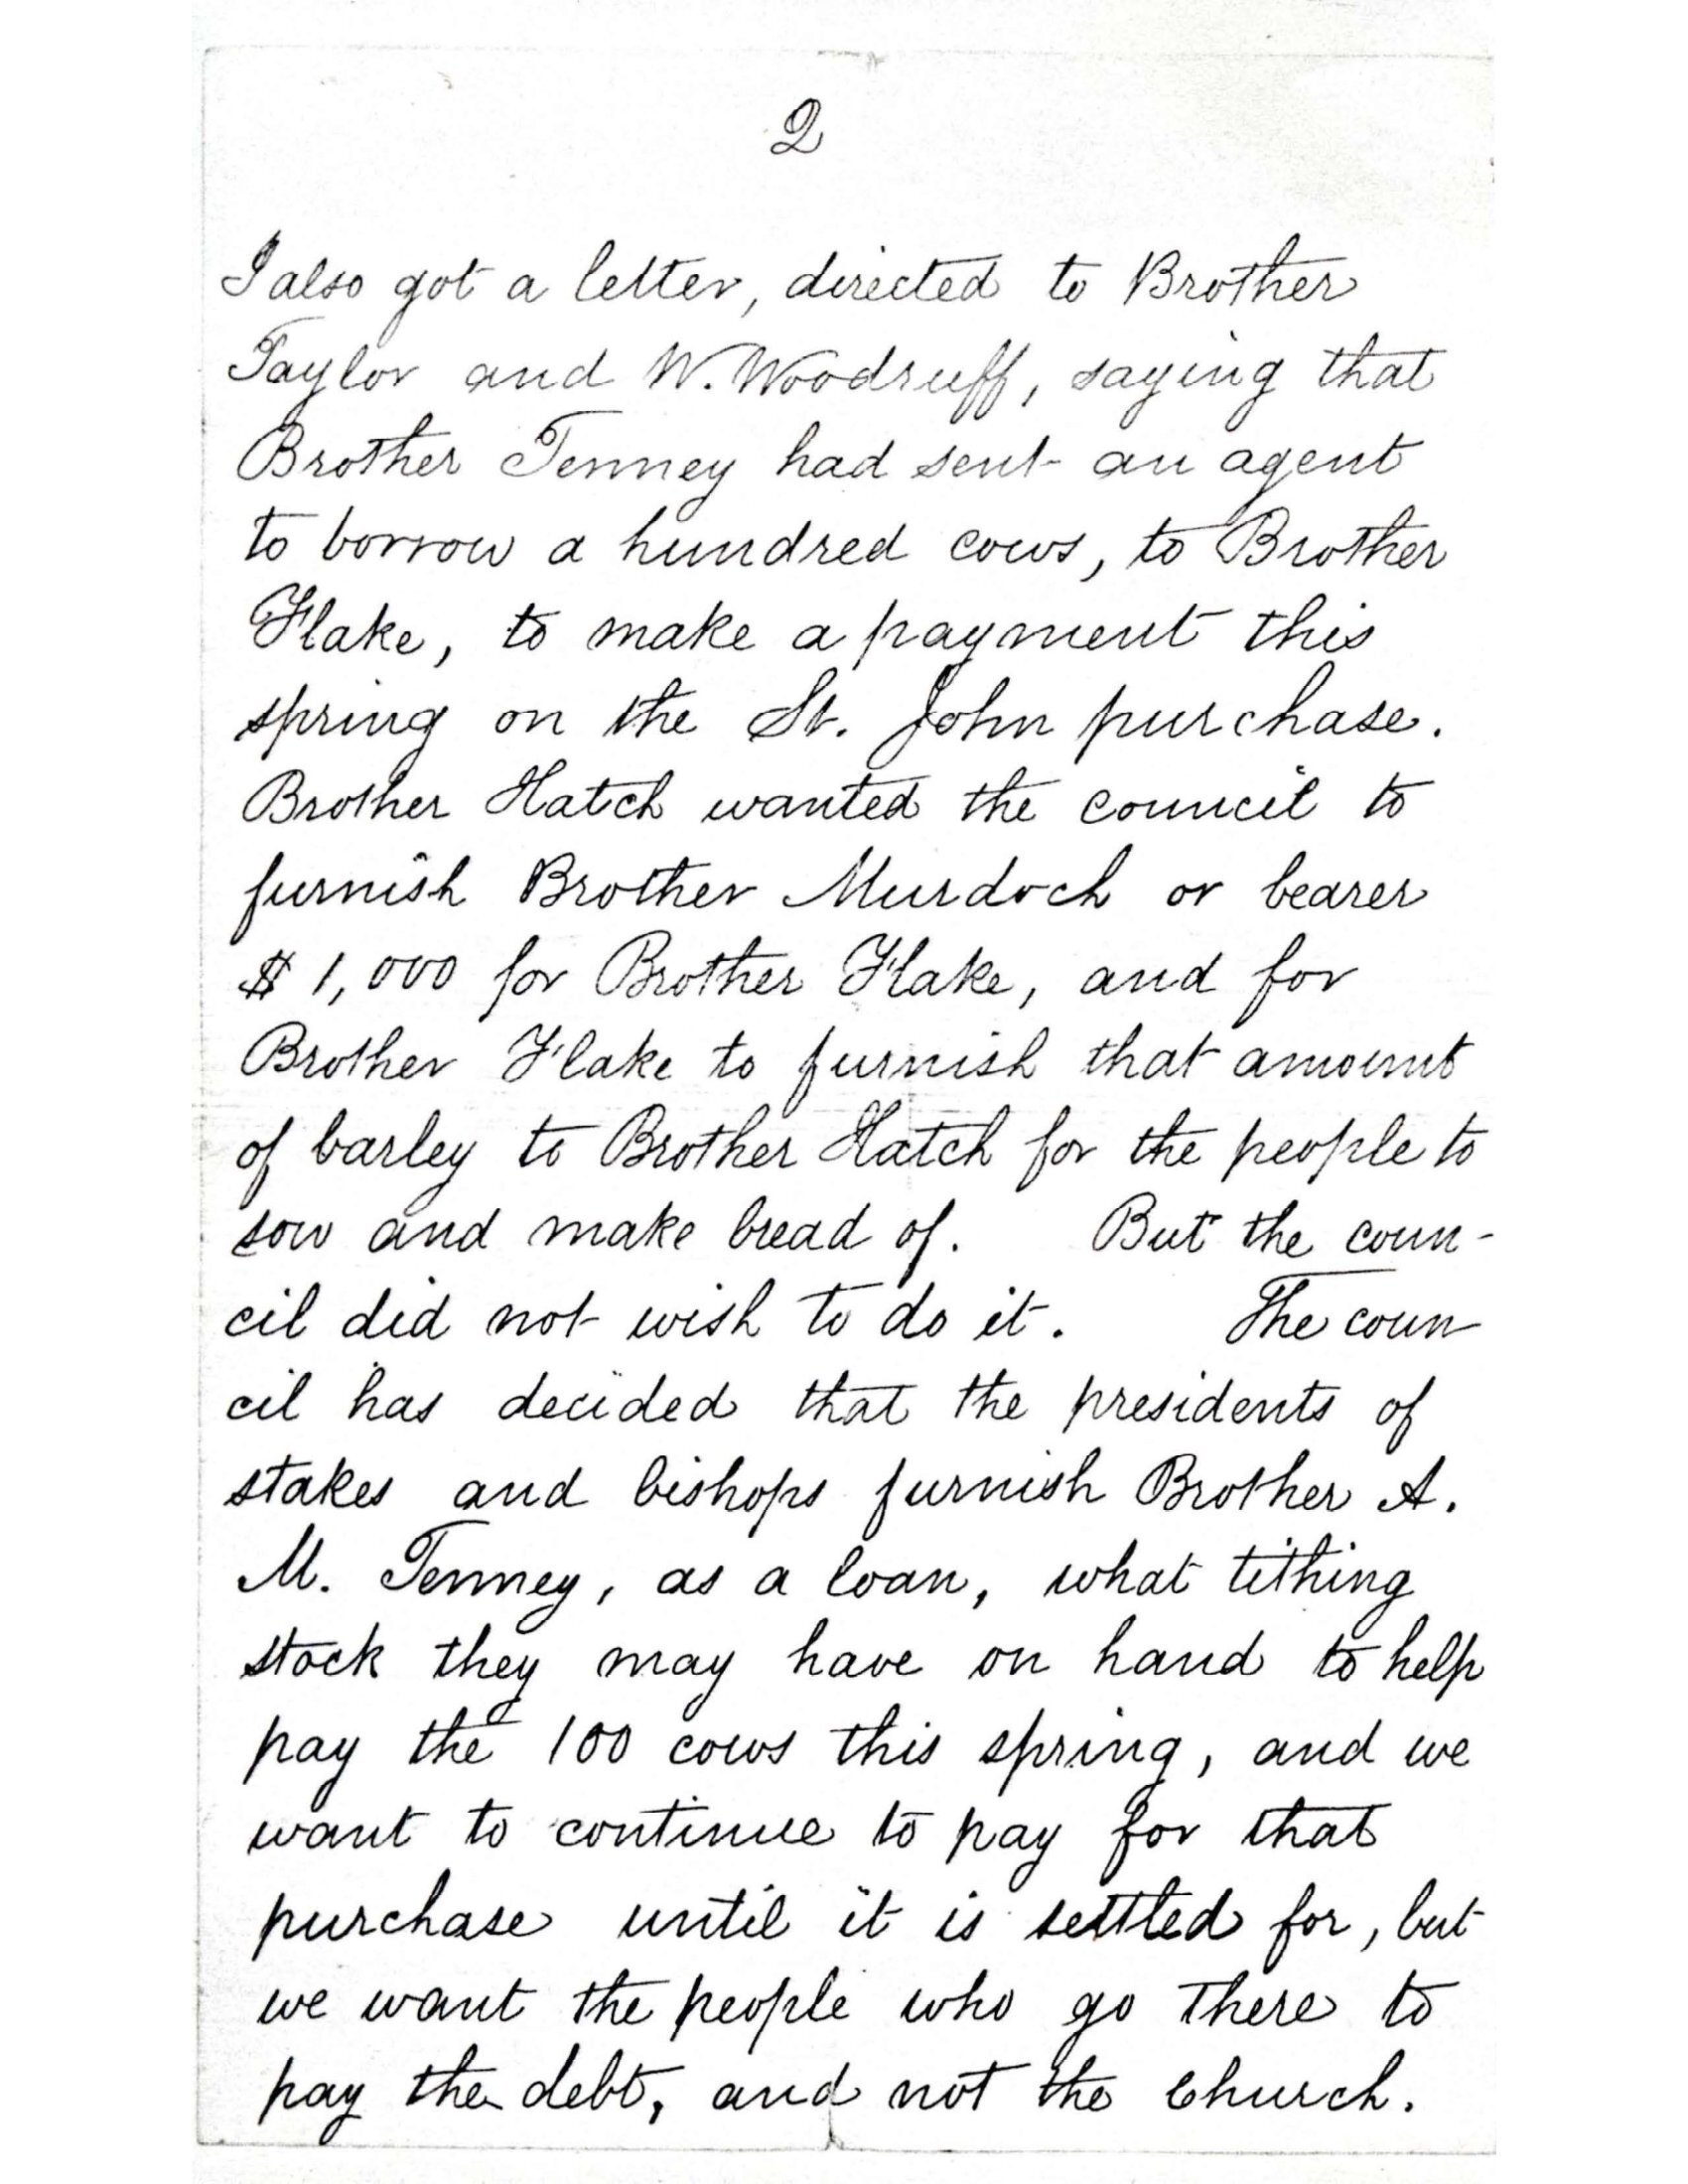 2
I also got a letter, directed to Brother
Taylor and W. Woodruff, saying that
Brother Tenney had sent an agent
to borrow a hundred cows, to Brother
Flake, to make a payment this
spring on the St. John purchase.
Brother Hatch wanted the council to
furnish Brother Murdoch or bearer
$ 1,000 for Brother Flake, and for
Brother Flake to furnish that amount
of barley to Brother Hatch for the people to
sow and make bread of. But the coun-
cil did not wish to do it. The coun
cil has decided that the presidents of
stakes and bishops furnish Brother A.
M. Tenney, as a loan, what tithing
stock they may have on hand to help
pay the 100 cows this spring, and we
want to continue to pay for that
purchase until it is settled for, but
we want the people who go there to
pay the debt, and not the Church.